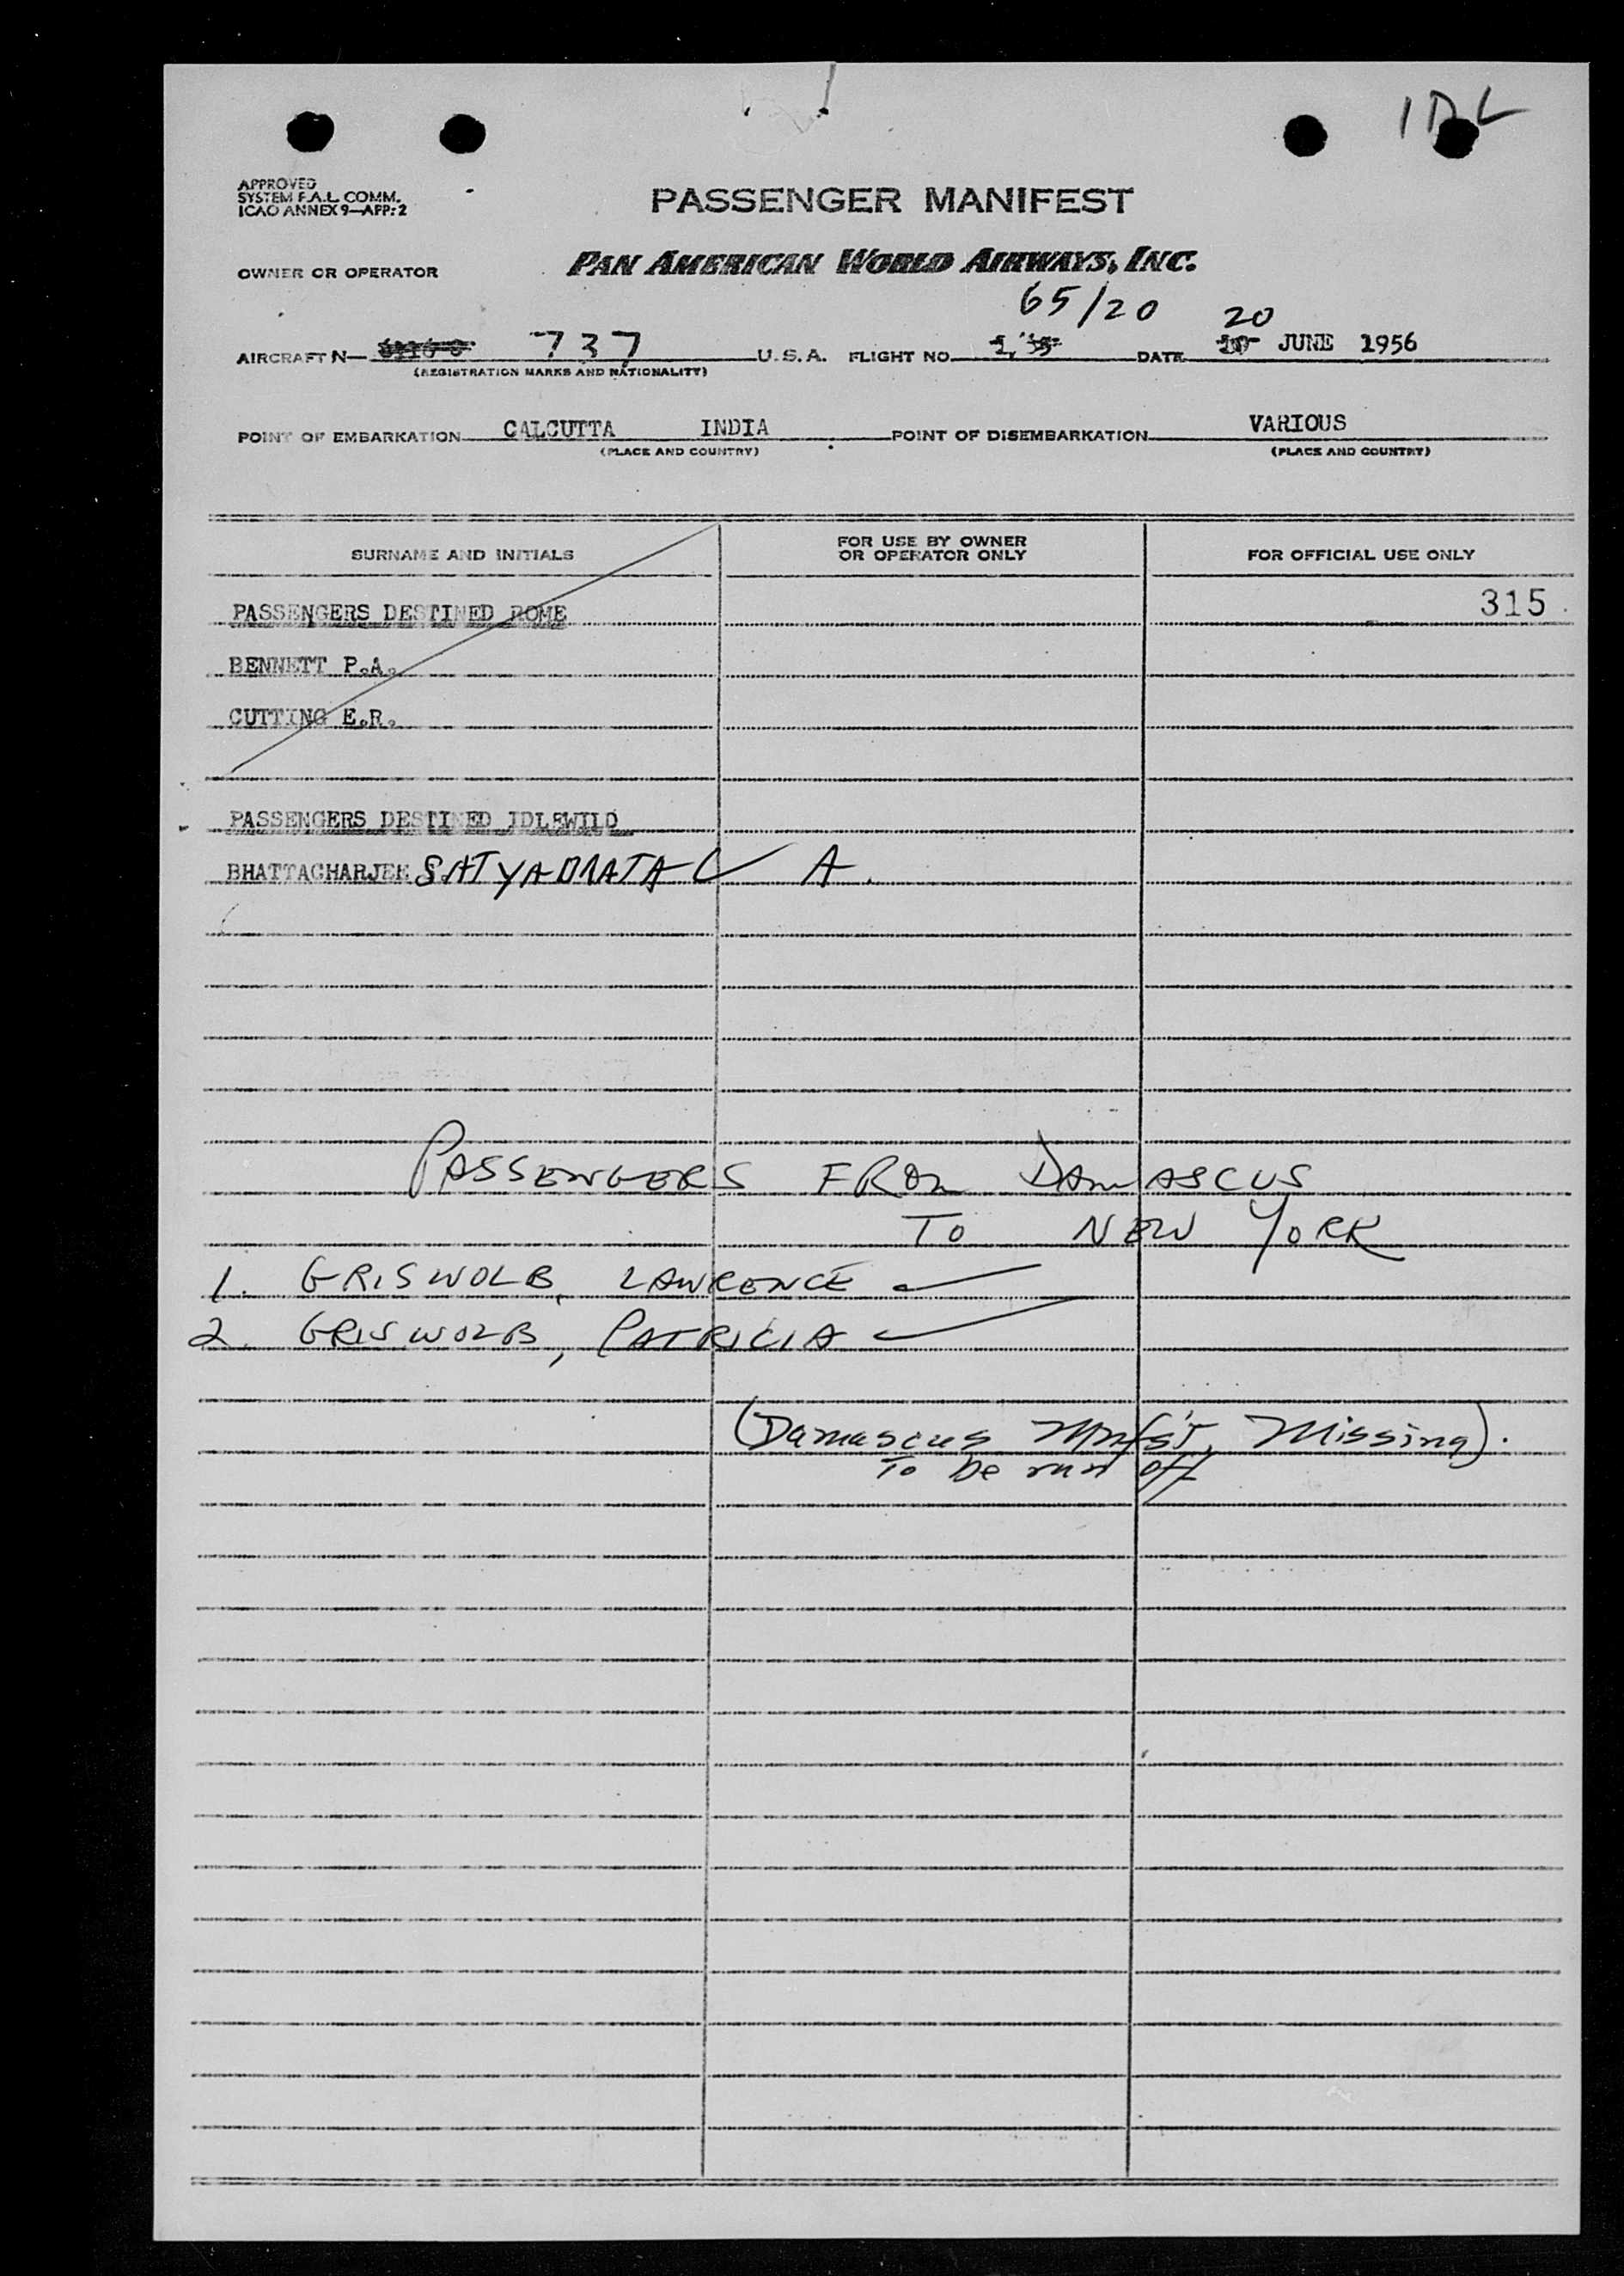 IDL
APPROVED
SYSTEM F.A.L. COMM.
ICAO ANNEX 9—APP: 2
PASSENGER MANIFEST
OWNER OR OPERATOR PAN AMERICAN WORLD AIRWAYS, INC.
65/20 20
AIRCRAFT N— 737 U.S.A. FLIGHT NO. DATE JUNE 1956
(REGISTRATION MARKS AND NATIONALITY)
POINT OF EMBARKATION CALCUTTA INDIA POINT OF DISEMBARKATION VARIOUS
(PLACE AND COUNTRY) (PLACE AND COUNTRY)
SURNAME AND INITIALS FOR USE BY OWNER OR OPERATOR ONLY FOR OFFICIAL USE ONLY
PASSENGERS DESTINED ROME 315
BENNETT P.A.
CUTTING E.R.
PASSENGERS DESTINED IDLEWILD
BHATTACHARJEE A.
PASSENGERS FROM DAMASCUS
TO NEW YORK
1. GRISWOLB, LAWRENCE
2. GRISWOLB, PATRICIA
(Damascus Mnfs't, Missing).
To be run off